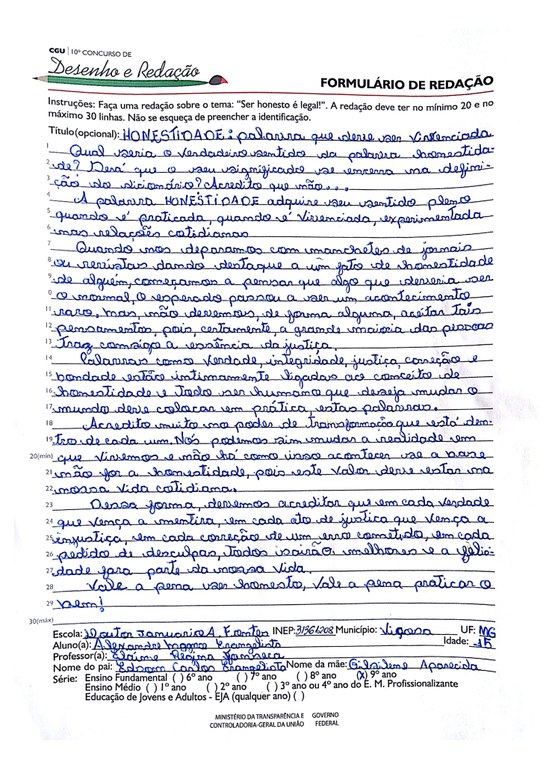 CGU | 10º CONCURSO DE
Desenho e Redação
FORMULÁRIO DE REDAÇÃO
Instruções: Faça uma redação sobre o tema: "Ser honesto é legal!". A redação deve ter no mínimo 20 e no
máximo 30 linhas. Não se esqueça de preencher a identificação.
Título(opcional): HONESTIDADE: palavra que deve ser vivenciada
1 Qual seria o verdadeiro sentido da palavra honestida-
2 de? Será que o seu significado se encerra na defini-
3 ção do dicionário? Acredito que não...
4 A palavra HONESTIDADE adquire seu sentido pleno
5 quando é praticada, quando é vivenciada, experimentada
6 nas relações cotidianas
7 Quando nos deparamos com manchetes de jornais
8 ou revistas dando destaque a um fato de honestidade
9 de alguém, começamos a pensar que algo que deveria ser
0 o normal, o esperado passou a ser um acontecimento
11 raro, mas, não devemos, de forma alguma, aceitar tais
12 pensamentos, pois, certamente, a grande maioria das pessoas
13 traz consigo a essência da justiça.
14 Palavras como verdade, integridade, justiça, correção e
15 bondade estão intimamente ligadas ao conceito de
16 honestidade e todo ser humano que deseja mudar o
17 mundo deve colocar em prática estas palavras.
18 Acredito muito no poder de transformação que está den-
19 tro de cada um. Nós podemos sim mudar a realidade em
20(min) que vivemos e não há como isso acontecer se a base
21 não for a honestidade, pois este valor deve estar na
22 nossa vida cotidiana.
23 Dessa forma, devemos acreditar que em cada verdade
24 que vença a mentira, em cada ato de justiça que vença a
25 injustiça, em cada correção de um erro cometido, em cada
26 pedido de desculpas, todos sairão melhores e a felici-
27 dade fará parte da nossa vida.
28 Vale a pena ser honesto, vale a pena praticar o
29 bem!
30(máx)
Escola: Doutor Januario A. Fontes INEP: 31961208 Município: Viçosa UF: MG
Aluno(a): Alexandre Magno Evangelista Idade: 15
Professor(a): Elaine Regina Fonseca
Nome do pai: Edson Carlos Evangelista Nome da mãe: Gilsilene Aparecida
Série: Ensino Fundamental ( ) 6º ano ( ) 7º ano ( ) 8º ano (x) 9º ano
Ensino Médio ( ) 1º ano ( ) 2º ano ( ) 3º ano ou 4º ano do E. M. Profissionalizante
Educação de Jovens e Adultos - EJA (qualquer ano) ( )
MINISTÉRIO DA TRANSPARÊNCIA E GOVERNO
CONTROLADORIA-GERAL DA UNIÃO FEDERAL